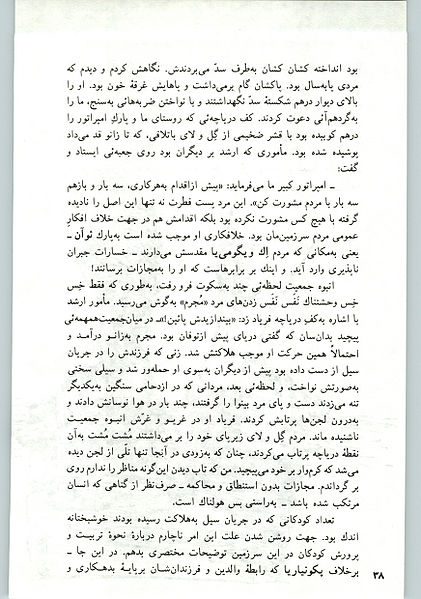 بود انداخته کشان کشان به‌طرف سد می‌بردندش. نگاهش کردم و دیدم که
مردی پابه‌سال بود. پاکشان گام برمی‌داشت و پاهایش غرقهٔ خون بود. او را
بالای دیوار درهم شکستهٔ سد نگهداشتند و با نواختن ضربه‌هائی به‌سنج، ما را
به‌گردهم‌آئی دعوت کردند. کف دریاچه‌ئی که روستای ما و پارك امپراتور را
درهم کوبیده بود با قشر ضخیمی از گِل و لای باتلاقی، که تا زانو قد می‌داد
پوشیده شده بود. مأموری که ارشد بر دیگران بود روی جعبه‌ئی ایستاد و
گفت:
ـ امپراتور کبیر ما می‌فرماید: «پیش ازاقدام به‌هرکاری، سه بار و بازهم
سه بار با مردم مشورت کن». این مرد پست فطرت نه تنها این اصل را نادیده
گرفته با هیچ کس مشورت نکرده بود بلکه اقدامش هم در جهت خلاف افکار
عمومی مردم سرزمین‌مان بود. خلافکاری او موجب شده است به‌پارك توآن ـ
یعنی به‌مکانی که مردم اِك ویگومی‌یا مقدسش می‌دارند ـ خسارات جبران
ناپذیری وارد آید. و اینك بر برابرهاست که او را به‌مجازات برسانند!
انبوه جمعیت لحظه‌ئی چند به‌سکوت فرو رفت، به‌طوری که فقط خِس
خِس وحشتناك نَفَس نَفَس زدن‌های مرد «مُجرم» به‌گوش می‌رسید. مأمور ارشد
با اشاره به‌کفِ دریاچه فریاد زد: «بیندازیدش پائین!». در میان‌جمعیت‌همهمه‌ئی
پیچید بدان‌سان که گفتی دریای پیش ازتوفان بود. مجرم به‌زانو درآمد و
احتمالاً همین حرکت او موجب هلاکتش شد. زنی که فرزندش را در جریان
سیل از دست داده بود پیش از دیگران به‌سوی او حمله‌ور شد و سیلی سختی
به‌صورتش نواخت، و لحظه‌ئی بعد، مردانی که در ازدحامی سنگین به‌یکدیگر
تنه می‌زدند دست و پای مرد بینوا را گرفتند، چند بار در هوا نوسانش دادند و
به‌درون لجن‌ها پرتابش کردند. فریاد او در غریو و غرّش انبوه جمعیت
ناشنیده ماند. مردم گِل و لای زیرپای خود را بر می‌داشتند مُشت مُشت به‌آن
نقطهٔ دریاچه پرتاب می‌کردند، چنان که به‌زودی در آنجا تنها تلّی از لجن دیده
می‌شد که کرم‌وار بر خود می‌پیچید. من که تاب دیدن این‌گونه مناظر را ندارم روی
بر گرداندم. مجازات بدون استنطاق و محاکمه ـ صرف‌نظر از گناهی که انسان
مرتکب شده باشد ـ به‌راستی بس هولناك است.
تعداد کودکانی که در جریان سیل به‌هلاکت رسیده بودند خوشبختانه
اندك بود. جهت روشن شدن علت این امر ناچارم دربارهٔ نحوهٔ تربیت و
پرورش کودکان در این سرزمین توضیحات مختصری بدهم. در این جا ـ
برخلاف پکونیاریا که رابطهٔ والدین و فرزندان‌شان برپایهٔ بدهکاری و
۳۸